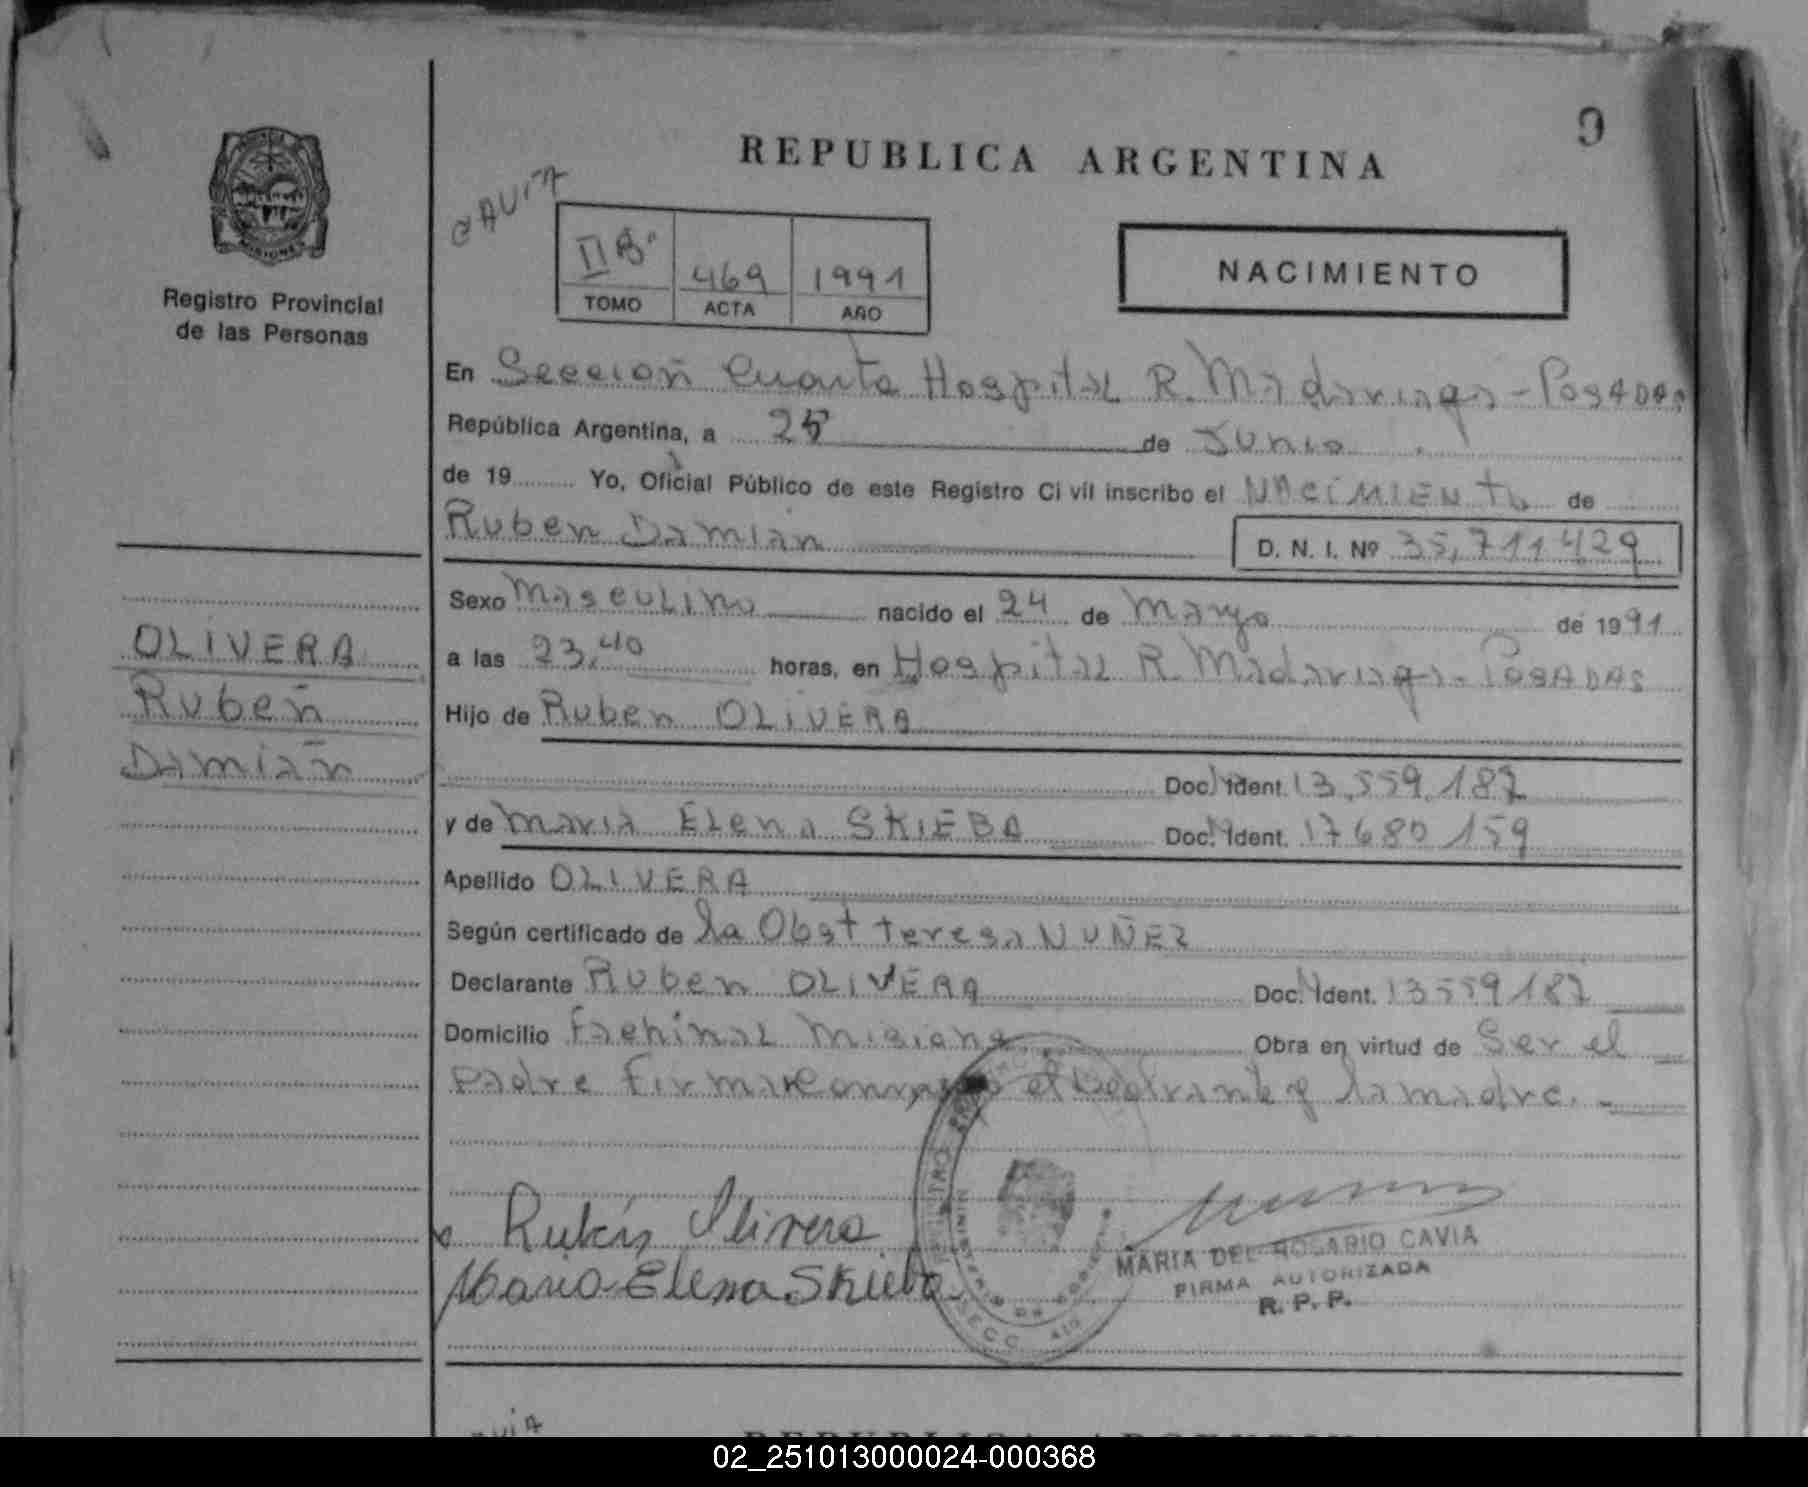 9
REPUBLICA ARGENTINA
CAVIA
PROVINCIA
MISIONES
Registro Provincial
de las Personas
II Bº 469 1991
TOMO ACTA AÑO
NACIMIENTO
En Sección Cuarta Hospital R. Madariaga - POSADAS
República Argentina, a 25 de Junio
de 19 Yo, Oficial Público de este Registro Ci vil inscribo el NACIMIENTO de
Ruben Damian D. N. I. Nº 35,711429
Sexo Masculino nacido el 24 de Mayo de 1991
a las 23,40 horas, en Hospital R. Madariaga - POSADAS
Hijo de Ruben OLIVERA
Doc. Ident. 13.559.187
y de Maria Elena SKIEBA Doc. Ident. 17680159
Apellido OLIVERA
Según certificado de la Obst Teresa NUÑEZ
Declarante Ruben OLIVERA Doc. Ident. 13559187
Domicilio Fachinal Misiones Obra en virtud de Ser el
Padre Firman Conmigo el Declrante y la madre. -
OLIVERA
Rubeñ
Damiañ
Rubén Olivera
Maria Elena Skieba
SECC.
MARIA DEL ROSARIO CAVIA
FIRMA AUTORIZADA
R. P. P.
REPUBLICA ARGENTINA
02_251013000024-000368